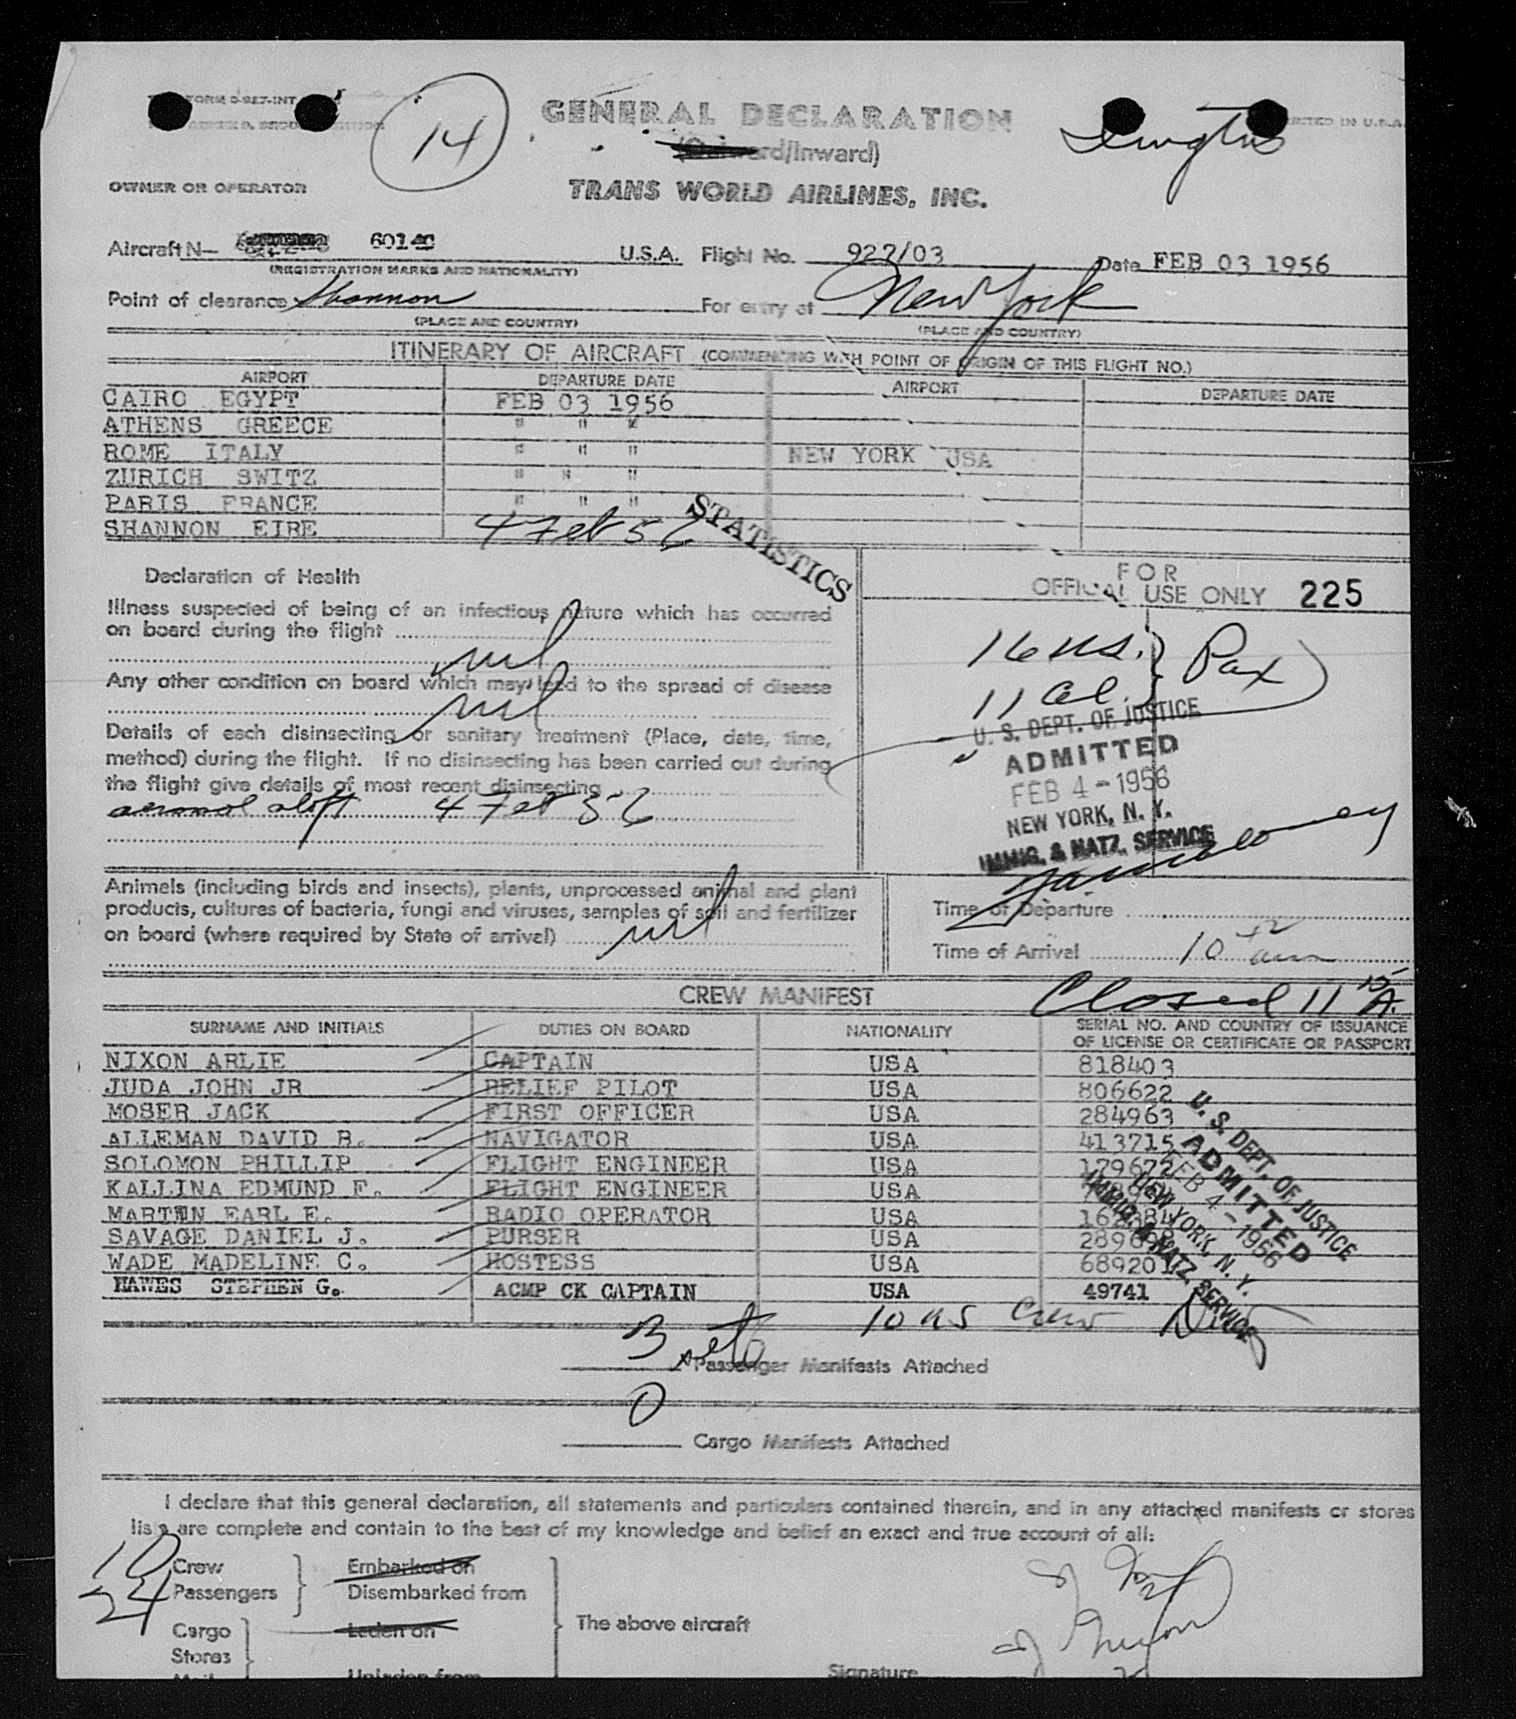 FORM 0-927-INT
14
GENERAL DECLARATION
(Outward/Inward)
PRINTED IN U.S.A.
OWNER OR OPERATOR
TRANS WORLD AIRLINES, INC.
Aircraft N— 6014C U.S.A. Flight No. 927/03 Date FEB 03 1956
(REGISTRATION MARKS AND NATIONALITY)
Point of clearance Shannon For entry at New York
(PLACE AND COUNTRY) (PLACE AND COUNTRY)
ITINERARY OF AIRCRAFT (COMMENCING WITH POINT OF ORIGIN OF THIS FLIGHT NO.)
AIRPORT DEPARTURE DATE AIRPORT DEPARTURE DATE
CAIRO EGYPT FEB 03 1956
ATHENS GREECE " " "
ROME ITALY " " " NEW YORK USA
ZURICH SWITZ " " "
PARIS FRANCE " " "
SHANNON EIRE 4 Feb 56
STATISTICS
Declaration of Health
Illness suspected of being of an infectious nature which has occurred
on board during the flight
nil
Any other condition on board which may lead to the spread of disease
nil
Details of each disinsecting or sanitary treatment (Place, date, time,
method) during the flight. If no disinsecting has been carried out during
the flight give details of most recent disinsecting
aerosol aloft 4 Feb 56
FOR
OFFICIAL USE ONLY 225
16 US. } Pax
11 al.
U. S. DEPT. OF JUSTICE
ADMITTED
FEB 4 - 1956
NEW YORK, N. Y.
IMMIG. & NATZ. SERVICE
Animals (including birds and insects), plants, unprocessed animal and plant
products, cultures of bacteria, fungi and viruses, samples of soil and fertilizer
on board (where required by State of arrival) nil
Time of Departure
Time of Arrival 10 12 am
CREW MANIFEST Closed 11 15 A.
SURNAME AND INITIALS DUTIES ON BOARD NATIONALITY SERIAL NO. AND COUNTRY OF ISSUANCE
OF LICENSE OR CERTIFICATE OR PASSPORT
NIXON ARLIE CAPTAIN USA 818403
JUDA JOHN JR RELIEF PILOT USA 806622
MOSER JACK FIRST OFFICER USA 284963
ALLEMAN DAVID B. NAVIGATOR USA 413715
SOLOMON PHILLIP FLIGHT ENGINEER USA 179672
KALLINA EDMUND F. FLIGHT ENGINEER USA
MARTIN EARL E. RADIO OPERATOR USA
SAVAGE DANIEL J. PURSER USA
WADE MADELINE C. HOSTESS USA 689201
HAWES STEPHEN G. ACMP CK CAPTAIN USA 49741
U. S. DEPT. OF JUSTICE
ADMITTED
FEB 4 - 1956
NEW YORK, N. Y.
IMMIG. & NATZ. SERVICE
10 US Crew
3 sets
Passenger Manifests Attached
0
Cargo Manifests Attached
I declare that this general declaration, all statements and particulars contained therein, and in any attached manifests or stores
lists are complete and contain to the best of my knowledge and belief an exact and true account of all:
10 Crew Embarked on
24 Passengers Disembarked from
Cargo Laden on The above aircraft
Stores
Mail Unladen from
Signature